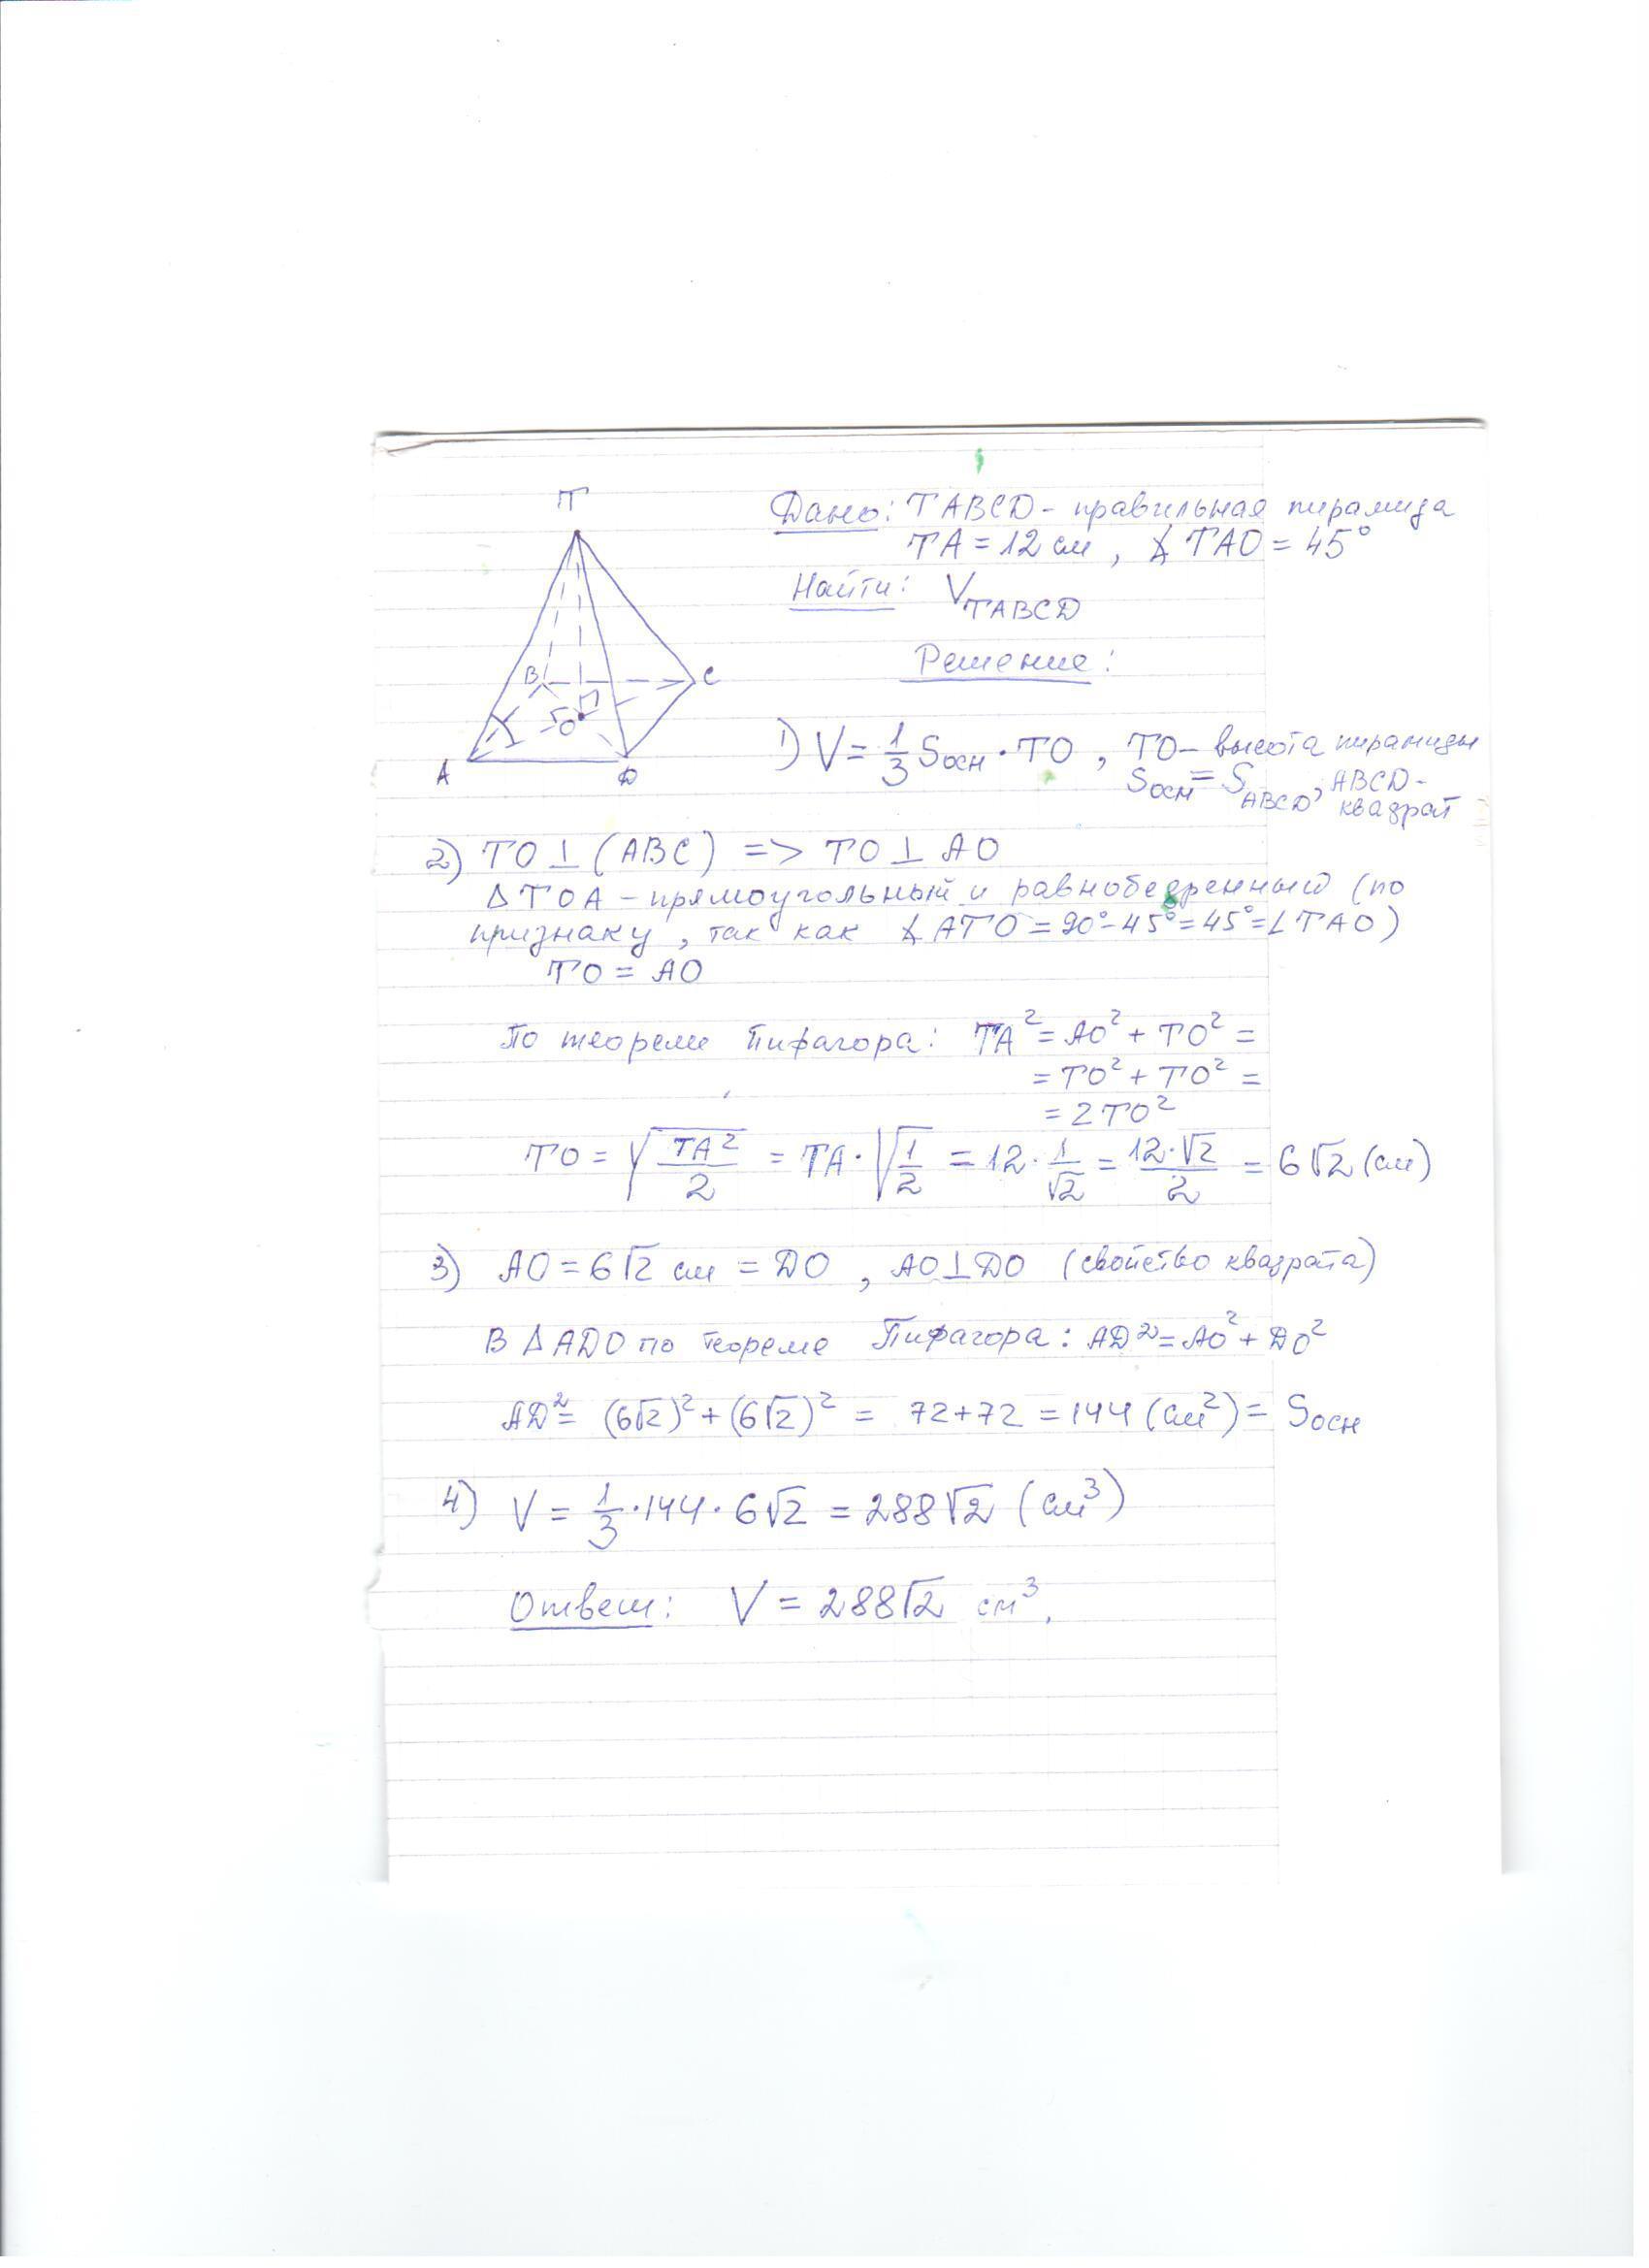 T
B
C
O
A
D
Дано: TABCD - правильная пирамида
TA = 12 см , ∡ TAO = 45°
Найти: V_TABCD
Решение:
1) V = 1/3 Sосн · TO , TO - высота пирамиды
Sосн = S_ABCD, ABCD - квадрат
2) TO ⊥ (ABC) => TO ⊥ AO
Δ TOA - прямоугольный и равнобедренный (по
признаку , так как ∡ ATO = 90° - 45° = 45° = ∠ TAO)
TO = AO
По теореме Пифагора: TA² = AO² + TO² =
= TO² + TO² =
= 2 TO²
TO = √(TA²/2) = TA · √(1/2) = 12 · 1/√2 = 12·√2/2 = 6√2 (см)
3) AO = 6√2 см = DO , AO ⊥ DO (свойство квадрата)
В Δ ADO по теореме Пифагора: AD² = AO² + DO²
AD² = (6√2)² + (6√2)² = 72 + 72 = 144 (см²) = Sосн
4) V = 1/3 · 144 · 6√2 = 288√2 (см³)
Ответ: V = 288√2 см³.